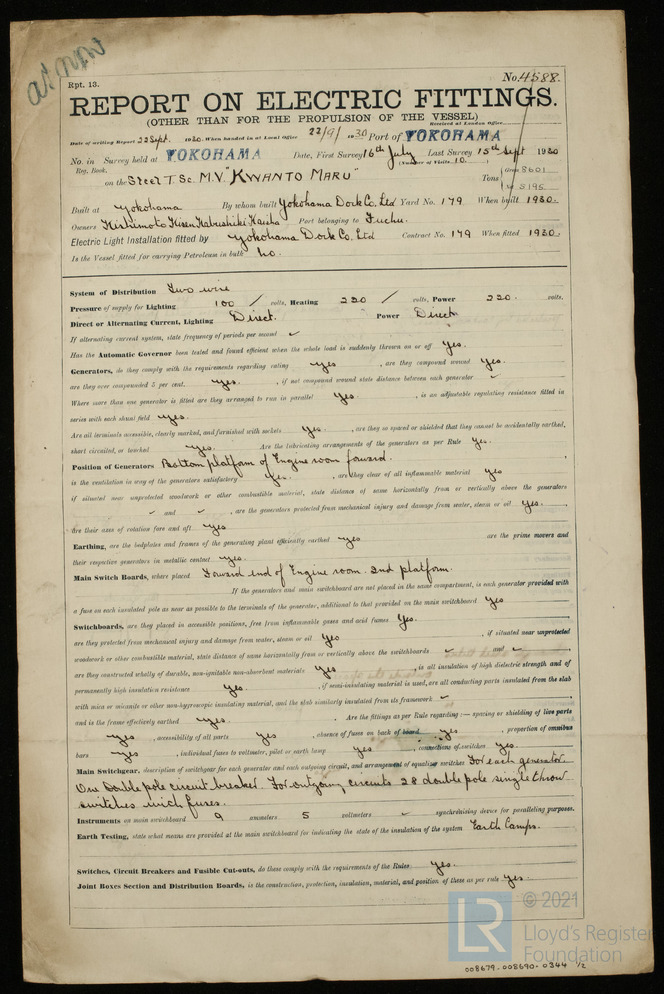 Rpt. 13.
No. 4588.
REPORT ON ELECTRIC FITTINGS.
(OTHER THAN FOR THE PROPULSION OF THE VESSEL)
Received at London Office
Date of writing Report 22 Sept. 1930. When handed in at Local Office 22/9/ 1930 Port of YOKOHAMA
No. in Survey held at YOKOHAMA Date, First Survey 16th July Last Survey 15th Sept 1930
Reg. Book. (Number of Visits 10.
on the Steel T. Sc. M.V. "KWANTO MARU" Tons Gross 8601
Net 5195
Built at Yokohama By whom built Yokohama Dock Co. Ltd Yard No. 179 When built 1930.
Owners Kishimoto Kisen Kabushiki Kaisha Port belonging to Fuchu.
Electric Light Installation fitted by Yokohama Dock Co. Ltd Contract No. 179 When fitted 1930.
Is the Vessel fitted for carrying Petroleum in bulk No.
System of Distribution Two wire
Pressure of supply for Lighting 100 / volts, Heating 220 / volts, Power 220. volts.
Direct or Alternating Current, Lighting Direct. Power Direct
If alternating current system, state frequency of periods per second ✓
Has the Automatic Governor been tested and found efficient when the whole load is suddenly thrown on or off Yes.
Generators, do they comply with the requirements regarding rating Yes , are they compound wound Yes.
are they over compounded 5 per cent. Yes. , if not compound wound state distance between each generator ✓
Where more than one generator is fitted are they arranged to run in parallel Yes , is an adjustable regulating resistance fitted in
series with each shunt field Yes.
Are all terminals accessible, clearly marked, and furnished with sockets Yes. , are they so spaced or shielded that they cannot be accidentally earthed,
short circuited, or touched Yes. Are the lubricating arrangements of the generators as per Rule Yes.
Position of Generators Bottom platform of Engine room forward.
is the ventilation in way of the generators satisfactory Yes. , are they clear of all inflammable material Yes
if situated near unprotected woodwork or other combustible material, state distance of same horizontally from or vertically above the generators
✓ and ✓ , are the generators protected from mechanical injury and damage from water, steam or oil Yes.
Are their axes of rotation fore and aft Yes
Earthing, are the bedplates and frames of the generating plant efficiently earthed Yes are the prime movers and
their respective generators in metallic contact Yes.
Main Switch Boards, where placed Forward end of Engine room. 2nd platform.
If the generators and main switchboard are not placed in the same compartment, is each generator provided with
a fuse on each insulated pole as near as possible to the terminals of the generator, additional to that provided on the main switchboard Yes
Switchboards, are they placed in accessible positions, free from inflammable gases and acid fumes Yes.
are they protected from mechanical injury and damage from water, steam or oil Yes , if situated near unprotected
woodwork or other combustible material, state distance of same horizontally from or vertically above the switchboards ✓ and ✓
are they constructed wholly of durable, non-ignitable non-absorbent materials Yes , is all insulation of high dielectric strength and of
permanently high insulation resistance Yes. , if semi-insulating material is used, are all conducting parts insulated from the slab
with mica or micanite or other non-hygroscopic insulating material, and the slab similarly insulated from its framework ✓
and is the frame effectively earthed Yes. Are the fittings as per Rule regarding :— spacing or shielding of live parts
Yes , accessibility of all parts Yes , absence of fuses on back of board Yes , proportion of omnibus
bars Yes , individual fuses to voltmeter, pilot or earth lamp Yes , connections of switches Yes.
Main Switchgear, description of switchgear for each generator and each outgoing circuit, and arrangement of equaliser switches For each generator
One Double pole circuit breaker. For outgoing circuits 28 double pole single throw
switches with fuses.
Instruments on main switchboard 9 ammeters 5 voltmeters ✓ synchronising device for paralleling purposes.
Earth Testing, state what means are provided at the main switchboard for indicating the state of the insulation of the system Earth Lamps.
Switches, Circuit Breakers and Fusible Cut-outs, do these comply with the requirements of the Rules Yes.
Joint Boxes Section and Distribution Boards, is the construction, protection, insulation, material, and position of these as per rule Yes.
LR
© 2021
Lloyd's Register
Foundation
008679-008690-0344 1/2